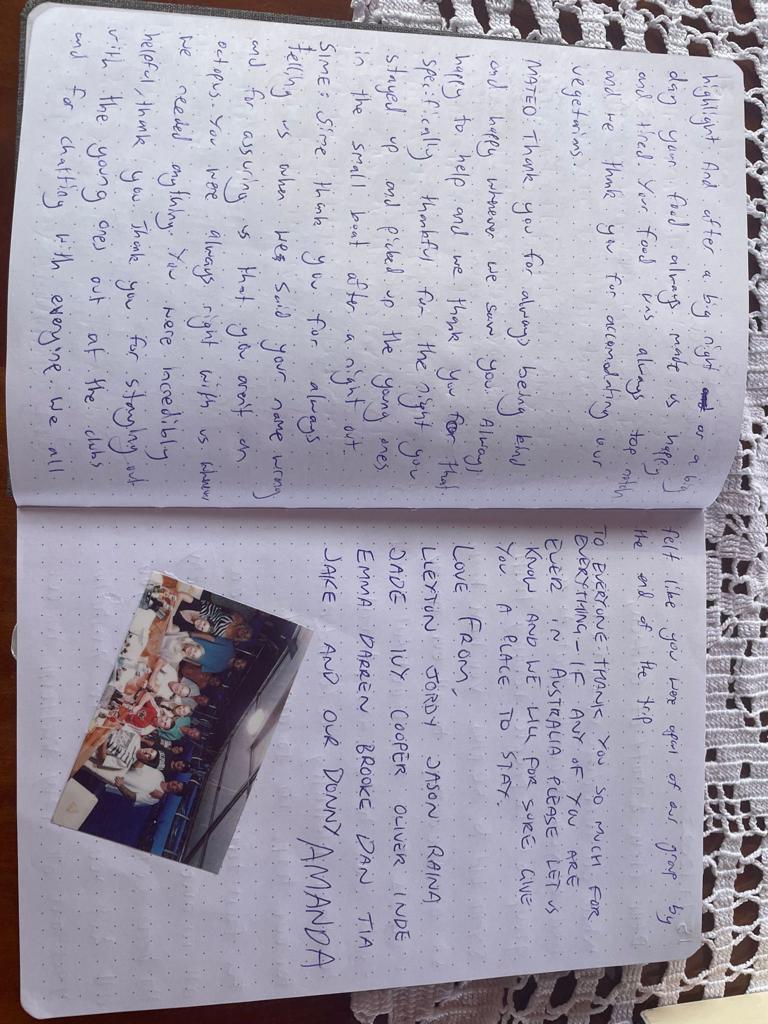 highlight And after a big night or a big
day your food always made us happy
and tired your food was always top notch
and we thank you for accomodating our
vegetarins.
MATEO: Thank you for always being kind
and happy whenever we saw you. Always
happy to help and we thank you for that
specifically thankful for the night you
stayed up and picked up the young ones
in the small boat after a night out.
SIME: Sime thank you for always
telling us when we said your name wrong
and for assuring us that you arent an
octopus. You were always right with us whenever
we needed anything. You were incredibly
helpful, thank you Thank you for staying out
with the young ones out at the clubs
and for chatting with everyone. We all
felt like you were apart of our group by
the end of the trip.
TO EVERYONE: THANK YOU SO MUCH FOR
EVERYTHING - IF ANY OF YOU ARE
EVER IN AUSTRALIA PLEASE LET US
KNOW AND WE WILL FOR SURE GIVE
YOU A PLACE TO STAY.
LOVE FROM,
LLEYTON JORDY JASON RAINA
JADE IVY COOPER OLIVER INDE
EMMA DARREN BROOKE DAN TIA
JAKE AND OUR DONNY AMANDA